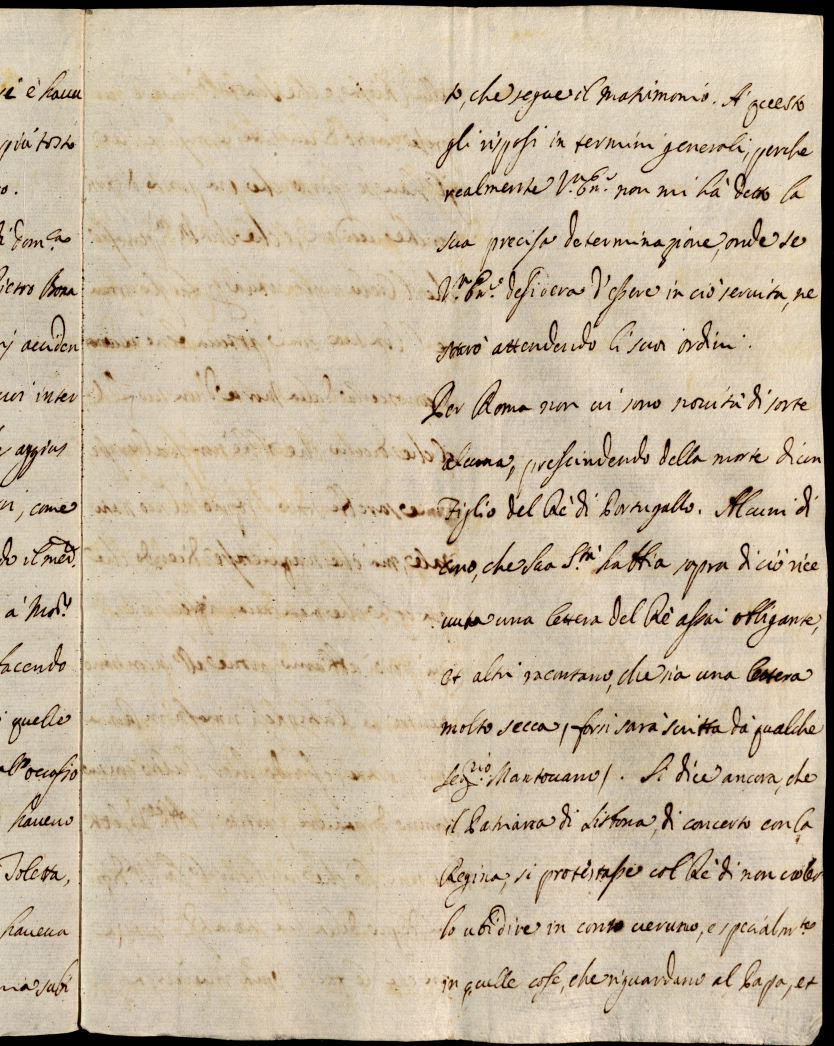 si è havu
più tosto
o.
di Dom.ca
Pietro Bona
rj acciden
uoi inter
aggius
ni, come
do il med.
à Mor.
facendo
quelle
all'occasio
haveno
Toletta,
haueua
subi
to, che segue il Matrimonio. A' questo
gli risposi in termini generali, perche
realmente V.ra Em.a non mi hà detto la
sua precisa determinazione, onde se
V.ra Em.a desidera d'essere in ciò seruita, ne
starò attendendo li suoi ordini.
Per Roma non ui sono nouità di sorte
alcuna, prescindendo della morte di un
Figlio del Rè di Portugallo. Alcuni di
cono, che Sua S.tà habbia sopra di ciò rice
uuta una lettera del Rè assai obligante,
et altri racontano, che sia una lettera
molto secca, forsi sarà scritta da qualche
Seg.rio Mantouano/. Si dice ancora, che
il Patriarca di Lisbona, di concerto con la
Regina, si protestasse col Rè di non uoler
lo ubidire in conto ueruno, e specialm.te
in quelle cose, che riguardano al Papa, et